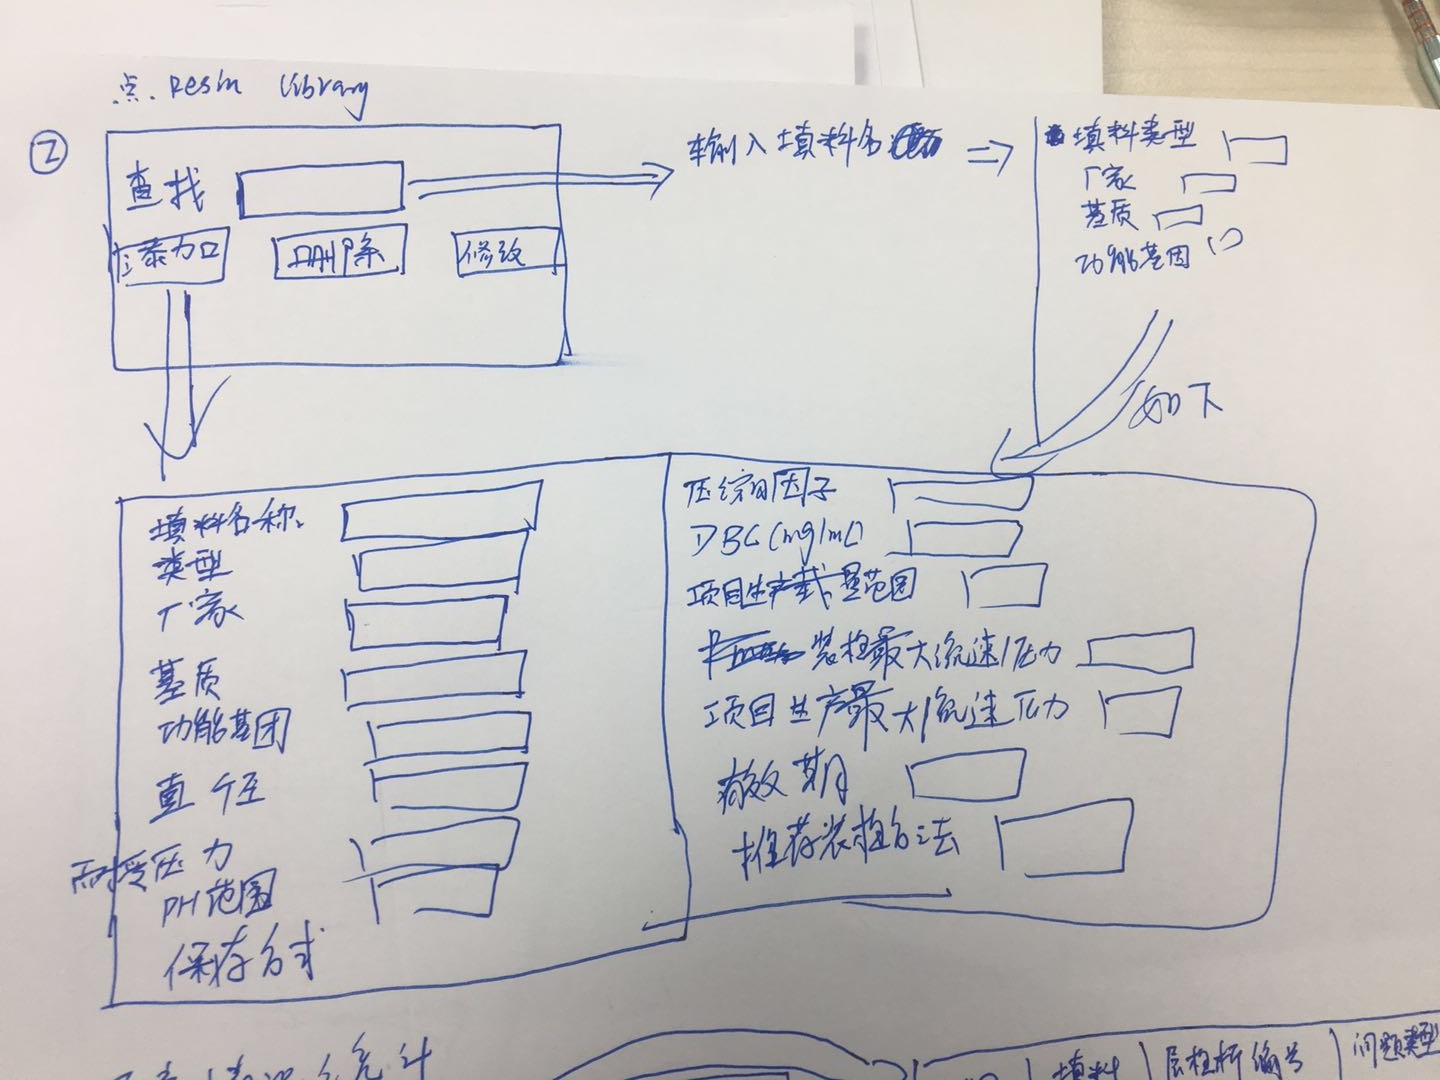 点. Resin Library
②
查找
添加 删除 修改
输入填料名
填料类型
厂家
基质
功能基团
如下
填料名称:
类型
厂家
基质
功能基团
直径
耐受压力
PH范围
保存方式
压缩因子
DBC(mg/mL)
项目生产载量范围
装柱最大流速/压力
项目生产最大流速/压力
有效期
推荐装柱方法
填料 层析柱编号 问题类型